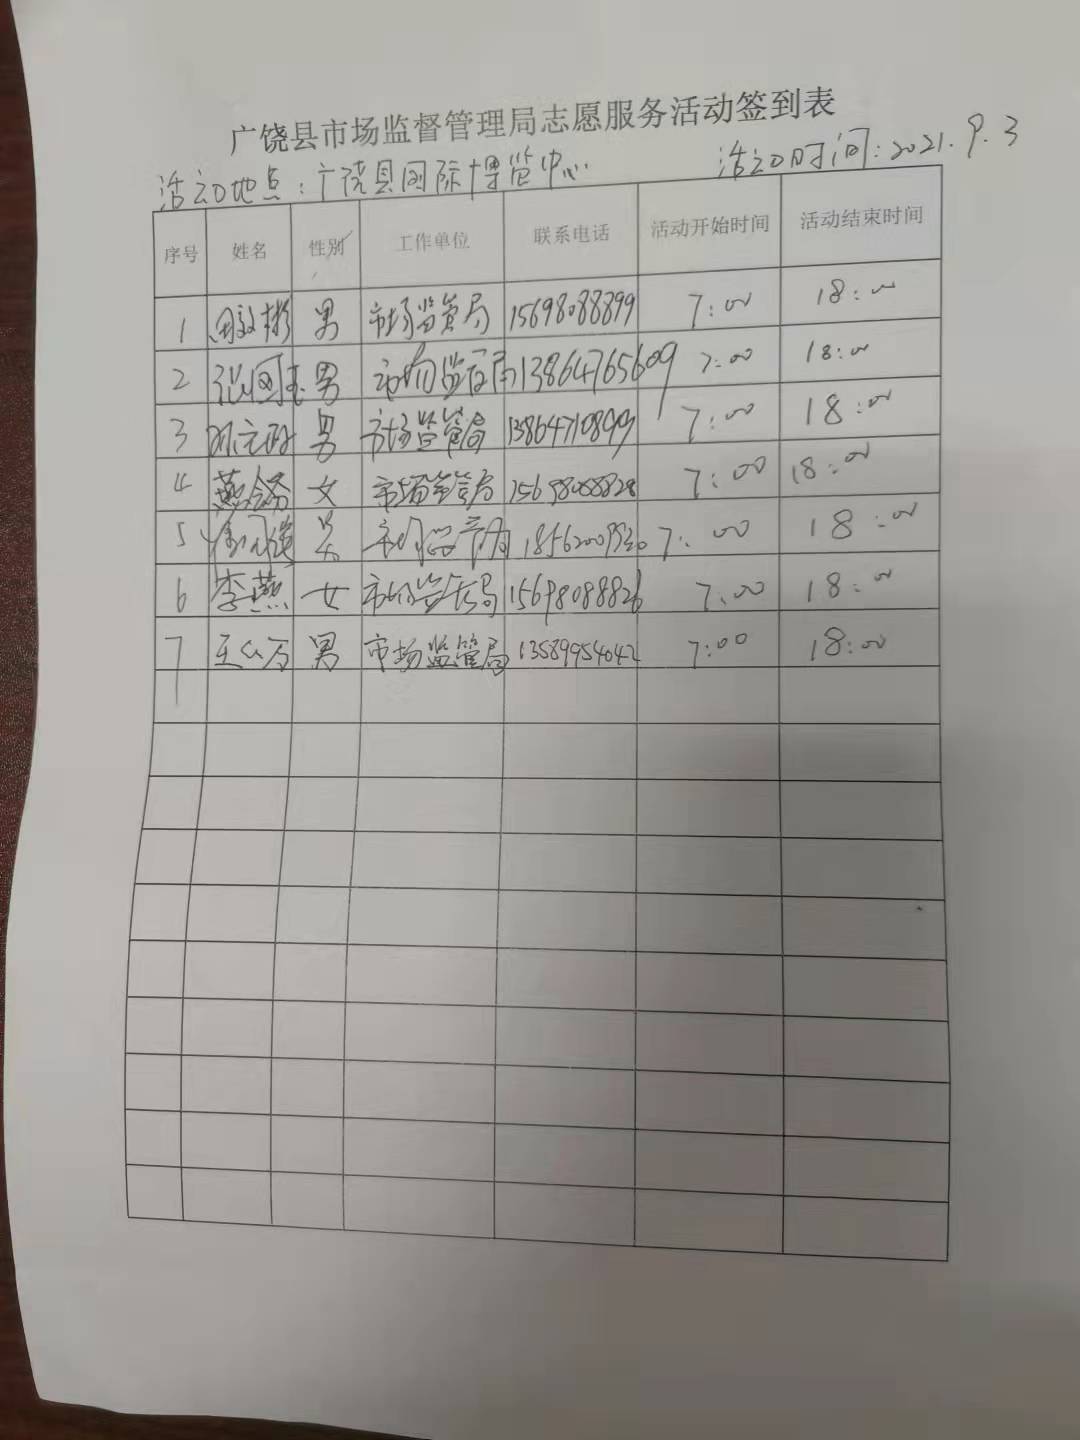 广饶县市场监督管理局志愿服务活动签到表
活动地点：广饶县国际博览中心 活动时间：2021.9.3
序号 姓名 性别 工作单位 联系电话 活动开始时间 活动结束时间
1 男 市场监管局 15698088899 7:00 18:00
2 张国 男 市场监管局 13864765609 7:00 18:00
3 男 市场监管局 7:00 18:00
4 燕 女 市场监管局 15698088828 7:00 18:00
5 男 市场监管局 7:00 18:00
6 李燕 女 市场监管局 15698088826 7:00 18:00
7 男 市场监管局 13589954042 7:00 18:00